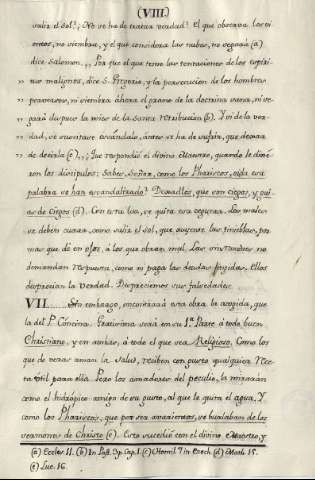 (VIII)
salir el sol? ¿No se ha de tratar verdad? El que observa los vi
entos, no siembra, y el que considera las nubes, no segará (a)
dice Salomon. Por que el que teme las tentaciones de los espiri
" tus malignos, dice S. Gregorio, y la persecucion de los hombres
" perversos, ni siembra áhora el grano de la doctrina sana, ni se-
" gará despues la mies de la santa retribucion (b). Y si de la ver-
" dad, se suscitare escándalo, ántes se ha de sufrir, que dexar
" de decirla (c). ¿Que respondió el divino Maestro, quando le dixe-
ron los discipulos: Sabes, Señor, como los Phariseos, oida esta
palabra se han escandalizado? Dexadles, que son ciegos, y gui-
as de Ciegos (d). Con esta luz, se quita esa ceguera. Los males
se deben curar, como salir el sol, que auyente las tinieblas, por
mas que dé en ojos, á los que obran mal. Las
demandan respuesta, como ni paga las deudas fingidas. Ellos
desprecian la verdad. Despreciemos sus falsedades.
VII. Sin embargo, encontrará esta obra la acogida, que
la del P. Concina. Gratisima será en su 1.ª Parte á todo buen
Christiano, y en ambas, á todo el que sea Religioso. Como los
que de veras aman la salud, reciben con gusto qualquiera Rece-
ta útil para ella. Pero los amadores del peculio, la mirarán
como el hidrópico amigo de su gusto, al que le quita el agua. Y
como los Phariseos, que por ser avarientos, se burlaban de los
sermones de Christo (e). Esto sucedió con el divino Maestro, y
(a) Eccles 11. (b) In Past. 3.p. Cap. 1. (c) Homil. 7 in Ezech. (d) Math. 15.
(e) Luc. 16.